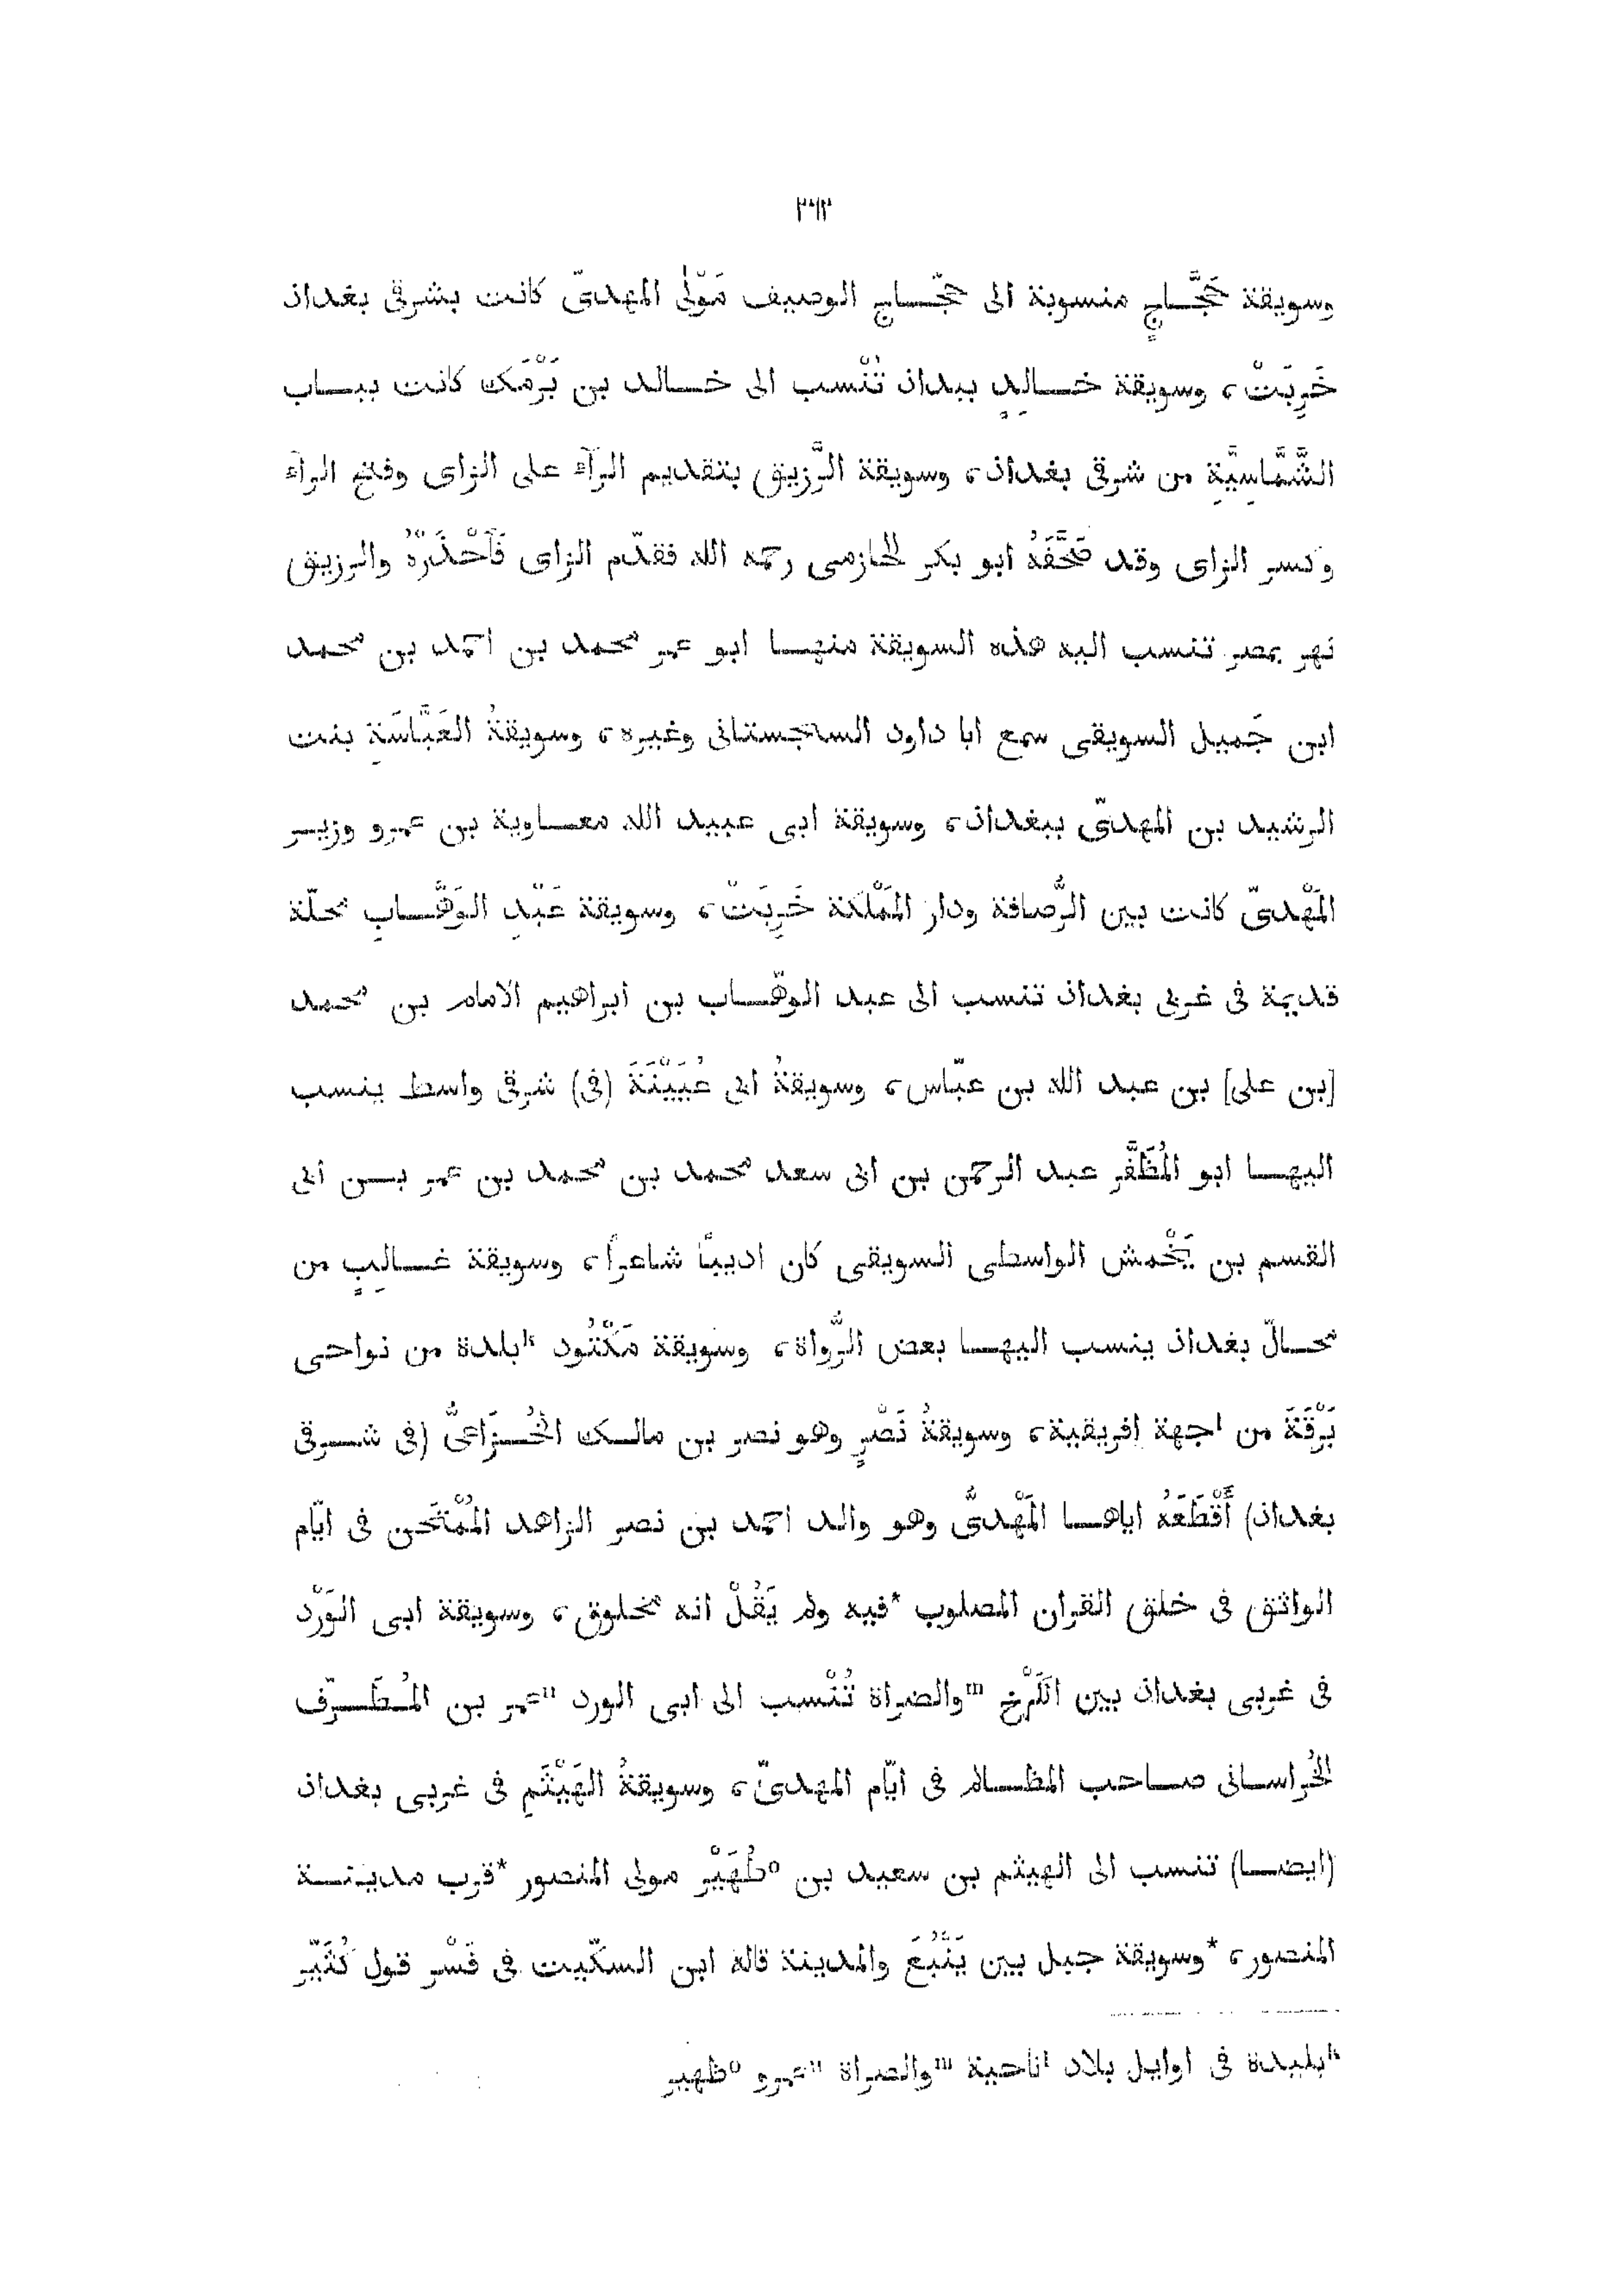 ٣٦٣
وسويقة حَجَّــاجٍ منسوبة الى حجّــاج الوصيف مَوْلى المهدىّ كانت بشرقى بغداد
خَرِبَتْ، وسويقة خــالِدٍ ببداد تُنْسب الى خــالد بن بَرْمَك كانت ببــاب
الشَّمَّاسِيَّةِ من شرقى بغداد، وسويقة الرَّزِيق بتقديم الرآء على الزاى وفتح الرآء
وكسر الزاى وقد صَحَّفَهُ ابو بكر الحازمى رحمه الله فقدّم الزاى فَاحْذَرْهُ والرزيق
نهر بمصر تنسب اليه هذه السويقة منهــا ابو عمر محمد بن احمد بن محمد
ابن جَميل السويقى سمع ابا داود السجستانى وغيره، وسويقةُ العَبَّاسَةِ بنت
الرشيد بن المهدىّ ببغداد، وسويقة ابى عبيد الله معــاوية بن عمرو وزيــر
المَهْدىّ كانت بين الرُّصافة ودار المَمْلكة خَرِبَتْ، وسويقة عَبْدِ الوَهَّــابِ محلّة
قديمة فى غربى بغداد تنسب الى عبد الوهّــاب بن ابراهيم الامام بن محمد
[بن على] بن عبد الله بن عبّاس، وسويقةُ ابى عُيَيْنَةَ (فى) شرقى واسط ينسب
اليهــا ابو المُظَفَّر عبد الرحمن بن ابى سعد محمد بن محمد بن عمر بــن ابى
القسم بن يَخْمش الواسطى السويقى كان اديبًا شاعرًا، وسويقة غــالِبٍ من
محــالّ بغداد ينسب اليهــا بعض الرُّواة، وسويقة مَكْتُود kبلدة من نواحى
بَرْقَةَ من lجهة افريقية، وسويقةُ نَصْرٍ وهو نصر بن مالــك الخُــزَاعىُّ (فى شــرقى
بغداد) أَقْطَعَهُ اياهــا المَهْدىُّ وهو والد احمد بن نصر الزاهد المُمْتَحَن فى ايّام
الواثق فى خلق القران المصلوب *فيه ولم يَقُلْ انه مخلوق، وسويقة ابى الوَرْد
فى غربى بغداد بين الكَرْخ mوالضراة تُنْسب الى ابى الورد nعمر بن المُــطَــرّف
الخُراســانى صــاحب المظــالم فى ايّام المهدىّ، وسويقةُ الهَيْثَمِ فى غربى بغداد
(ايضــا) تنسب الى الهيثم بن سعيد بن oظُهَيْر مولى المنصور *قرب مدينــة
المنصور، *وسويقة جبل بين يَنْبُعَ والمدينة قاله ابن السكّيت فى فَسْر قول كُثَيّر
kبليدة فى اوايل بلاد lناحية mوالصراة nعمرو oظهير